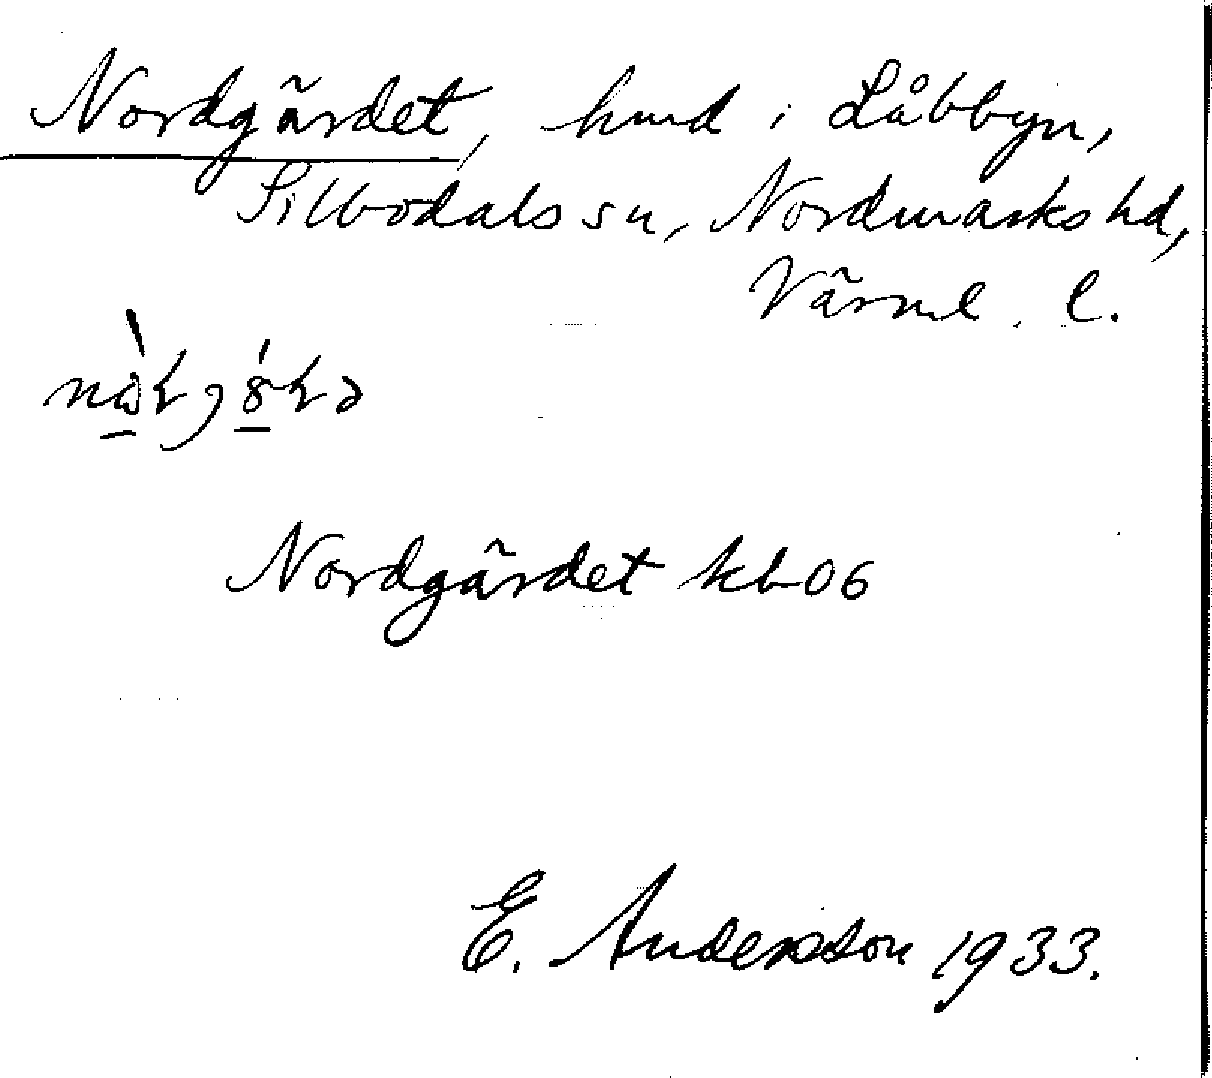 Nordgärdet, hmd i Låbbyn,
Silbodals sn, Nordmarks hd,
Värml. l.
Nordgärdet kb 06
E. Andersson 1933.